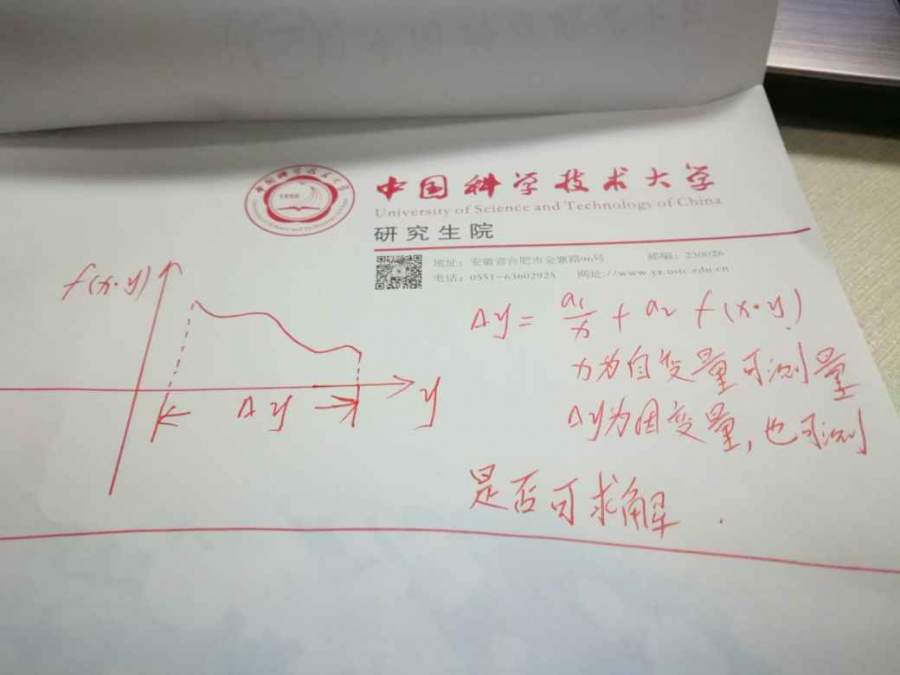 中国科学技术大学
University of Science and Technology of China
研究生院
地址：安徽省合肥市金寨路96号 邮编：230026
电话：0551-63602925 网址：http://www.yz.ustc.edu.cn
1958
f(x·y)
Δy
y
Δy = a₁/x + a₂ f(x·y)
x为自变量可测量
Δy为因变量，也可测
是否可求解．